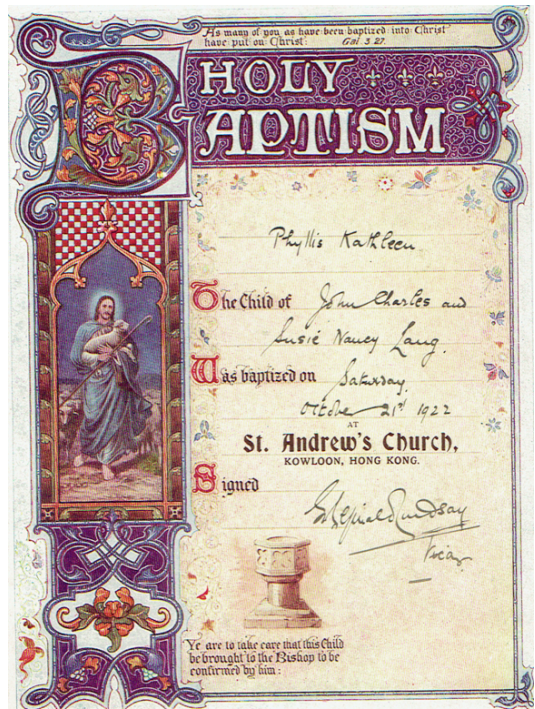 As many of you as have been baptized into Christ
have put on Christ: Gal 3.27.
HOLY
BAPTISM
Phyllis Kathleen
The Child of John Charles and
Susie Nancy Lang.
Was baptized on Saturday
October 21st 1922
AT
St. Andrew's Church,
KOWLOON, HONG KONG.
Signed
Lindsay
Vicar
Ye are to take care that this Child
be brought to the Bishop to be
confirmed by him: